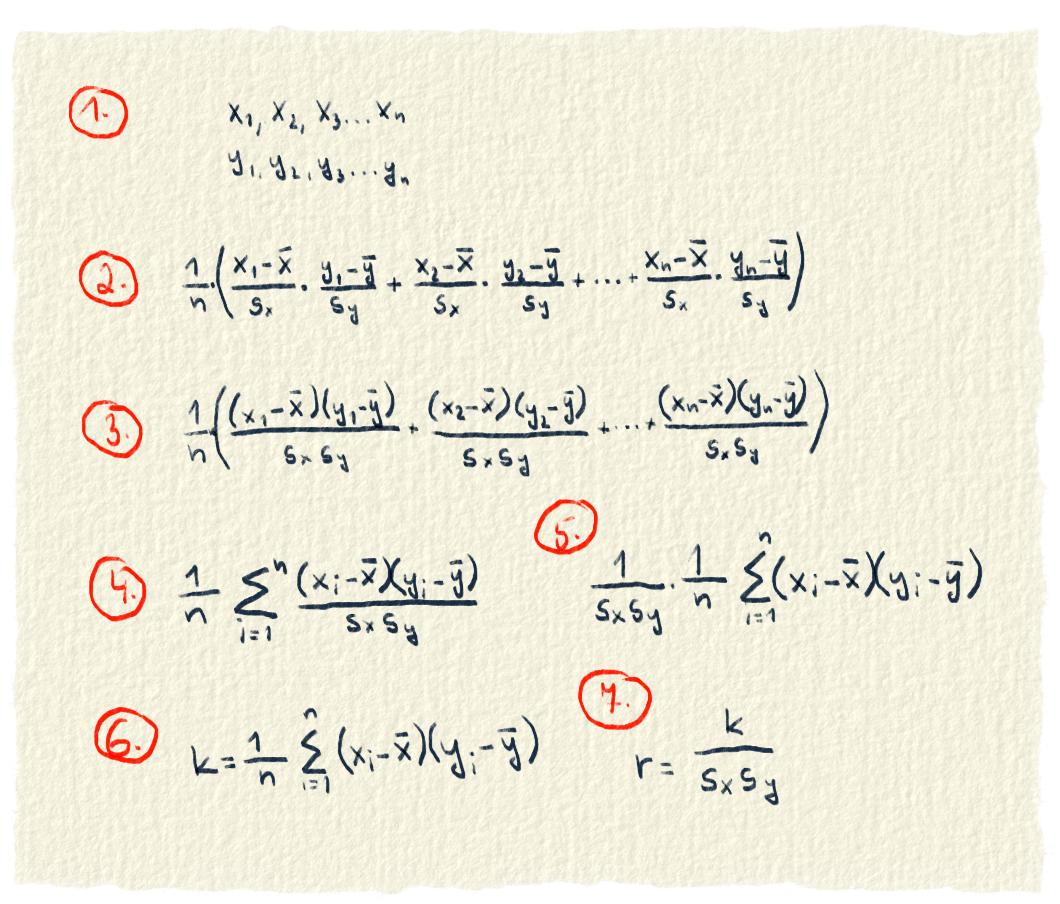 1. x₁, x₂, x₃...xₙ
y₁, y₂, y₃...yₙ
2. 1/n·((x₁-x̄)/sₓ · (y₁-ȳ)/s_y + (x₂-x̄)/sₓ · (y₂-ȳ)/s_y + ... + (xₙ-x̄)/sₓ · (yₙ-ȳ)/s_y)
3. 1/n·((x₁-x̄)(y₁-ȳ)/(sₓs_y) + (x₂-x̄)(y₂-ȳ)/(sₓs_y) + ... + (xₙ-x̄)(yₙ-ȳ)/(sₓs_y))
4. 1/n ∑_{i=1}^{n} (xᵢ-x̄)(yᵢ-ȳ)/(sₓs_y)
5. 1/(sₓs_y) · 1/n ∑_{i=1}^{n} (xᵢ-x̄)(yᵢ-ȳ)
6. k = 1/n ∑_{i=1}^{n} (xᵢ-x̄)(yᵢ-ȳ)
7. r = k/(sₓs_y)